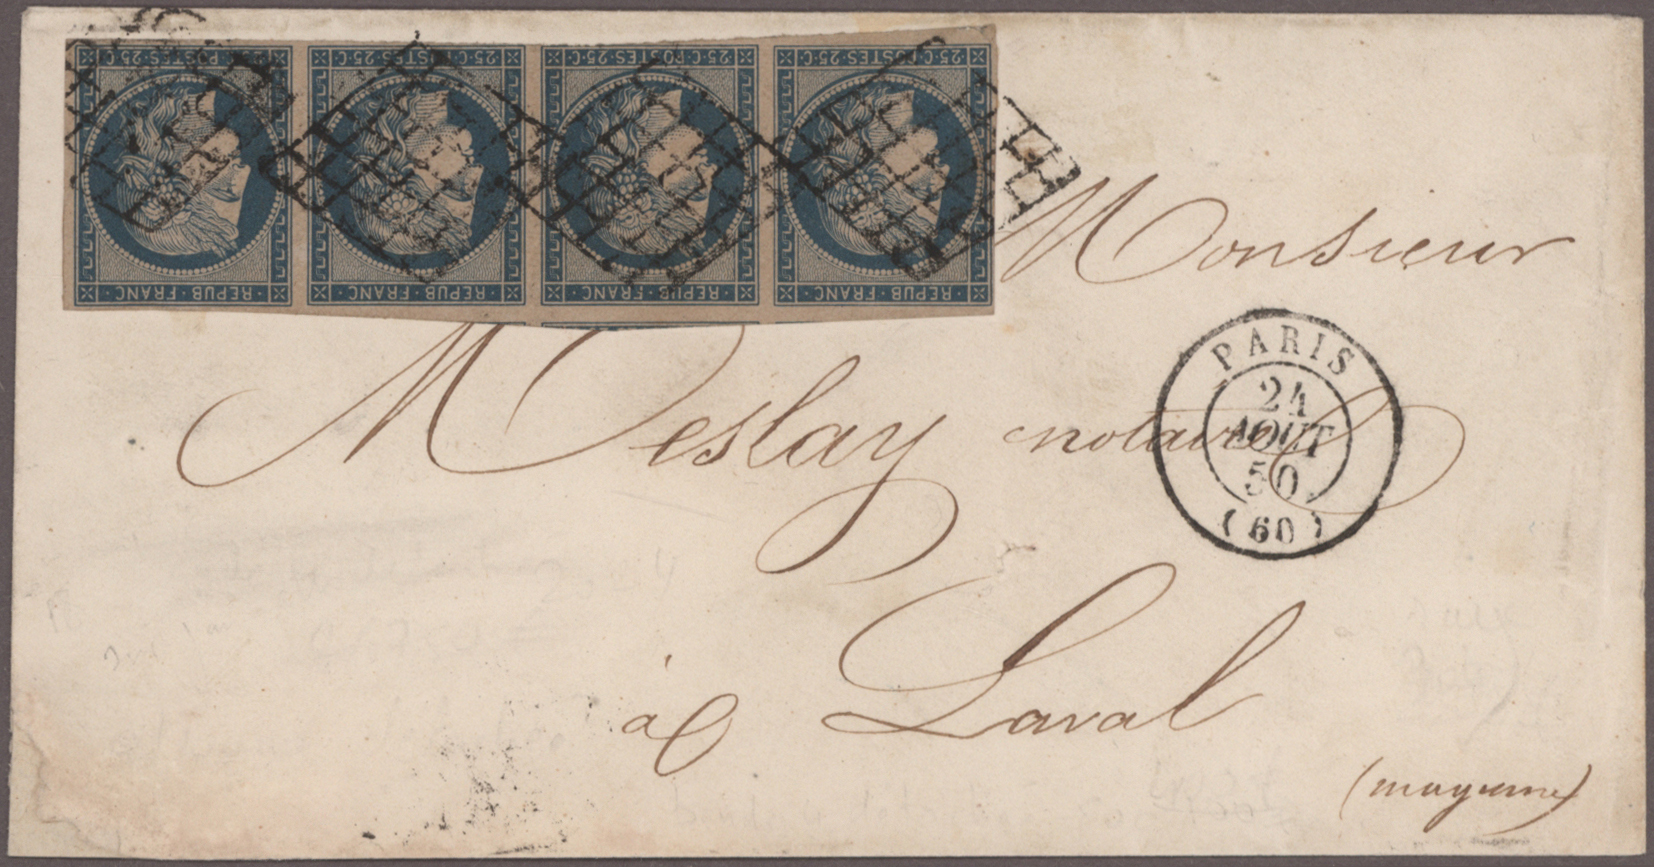 25·C·POSTES·25·C 25·C·POSTES·25·C 25·C·POSTES·25·C 25·C·POSTES·25·C
REPUB·FRANC REPUB·FRANC REPUB·FRANC REPUB·FRANC
Monsieur
Meslay notaire
PARIS
24
AOUT
50
(60)
à Laval
(mayenne)